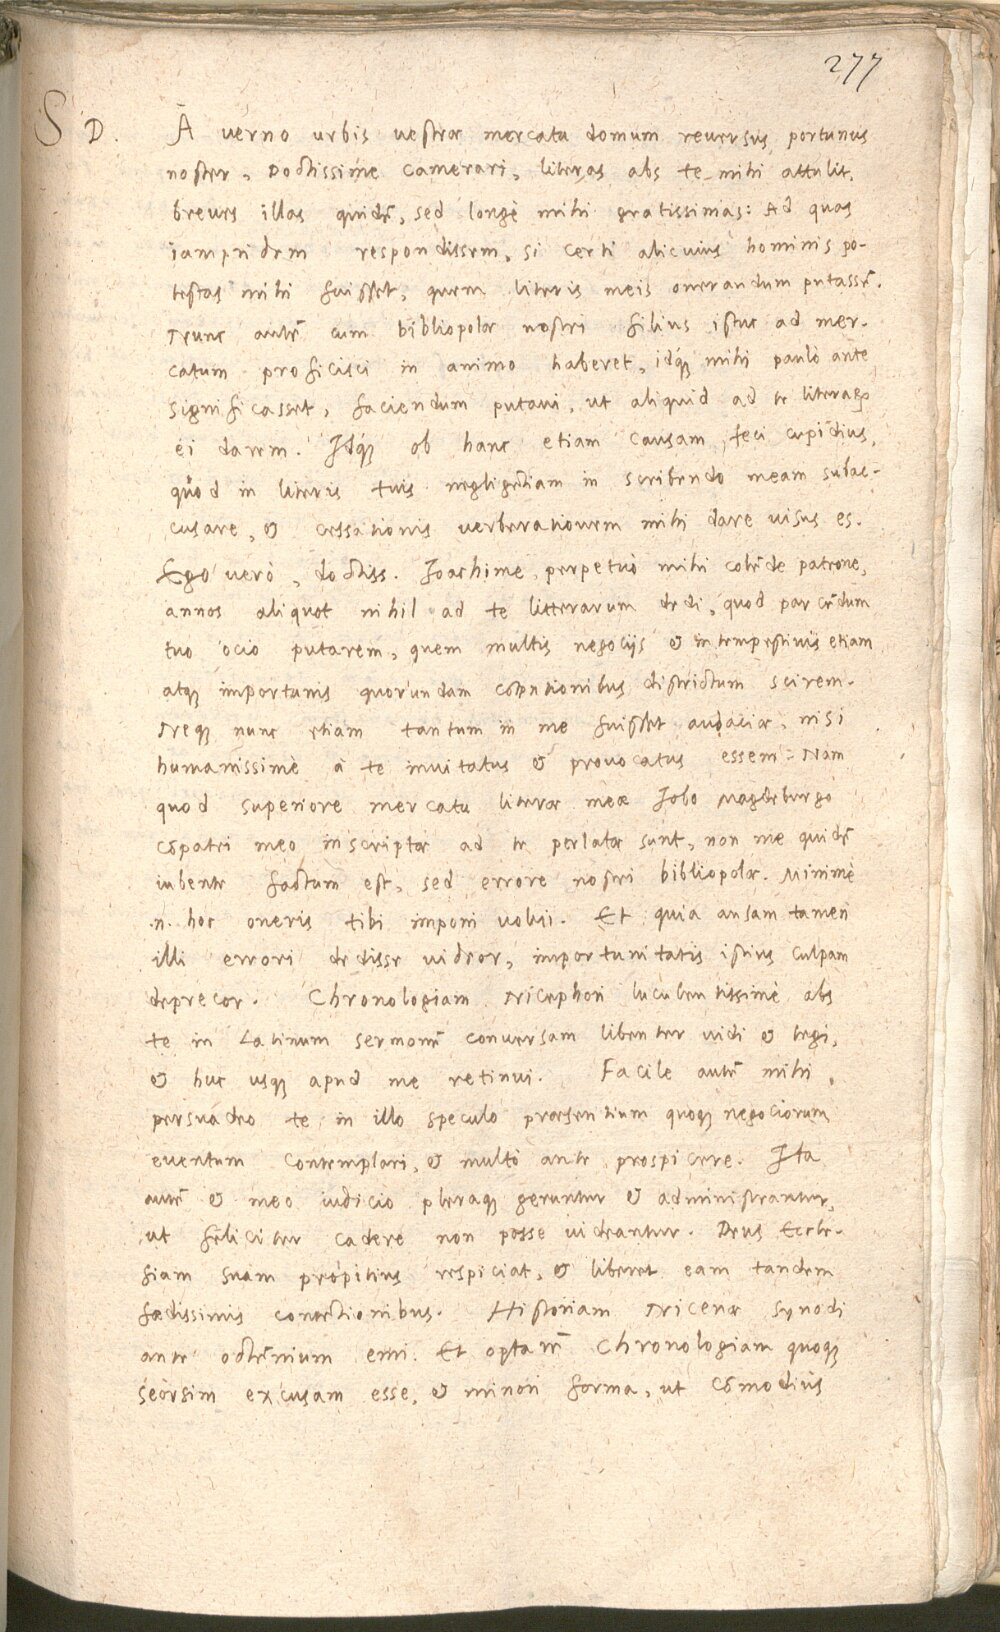 277
S D. A verno urbis vestræ mercatu domum reversus portunus
noster, Doctissime Camerari, literas abs te mihi attulit,
breves illas quidẽ, sed longè mihi gratissimas: Ad quas
iampridem respondissem, si certi alicuius hominis po-
testas mihi fuisset, quem literis meis onerandum putassẽ.
Nunc autẽ cum bibliopolæ nostri filius istuc ad mer-
catum proficisci in animo haberet, idq́ꝫ mihi paulò ante
significasset, faciendum putavi, ut aliquid ad te literaꝝ
ei darem. Idq́ꝫ ob hanc etiam causam feci cupidius,
quòd in literis tuis negligẽtiam in scribendo meam subac-
cusare, & cessationis verberationem mihi dare visus es.
Ego verò, doctiss. Ioachime, perpetuò mihi colẽde patrone,
annos aliquot nihil ad te litterarum dedi, quod parcẽdum
tuo ocio putarem, quem multis negocijs & intempestivis etiam
atqꝫ importunis quorundam districtum scirem.
Neqꝫ nunc etiam tantum in me fuisset audaciæ, nisi
humanissimè à te invitatus & provocatus essem. Nam
quod superiore mercatu literæ meæ Iobo Magdeburgo
cõpatri meo inscriptæ ad te perlatæ sunt, non me quidẽ
iubente factum est, sed errore nostri bibliopolæ. Minimè
.n. hoc oneris tibi imponi volui. Et quia ansam tamen
illi errori dedisse videor, importunitatis istius culpam
deprecor. Chronologiam Nicephori luculentissimè abs
te in Latinum sermonẽ conversam libenter vidi & legi,
& huc usqꝫ apud me retinui. Facile autẽ mihi
persuadeo te in illo speculo præsentium quoqꝫ negociorum
eventum contemplari, & multò ante prospicere. Ita
autẽ & meo iudicio pleraqꝫ geruntur & administrantur,
ut feliciter cadere non posse videantur. Deus Eccle-
siam suam propitius respiciat, & liberet eam tandem
fœdissimis contẽtionibus. Historiam Nicenæ Synodi
ante octẽnium emi. Et optarẽ Chronologiam quoqꝫ
seorsim excusam esse, & minori forma, ut cõmodius